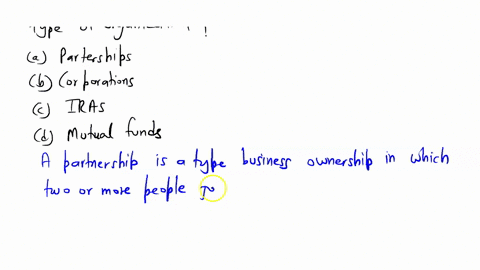 type of organization
(a) Parterships
(b) Corporations
(c) IRAs
(d) Mutual funds
A partnership is a type business ownership in which
two or more people